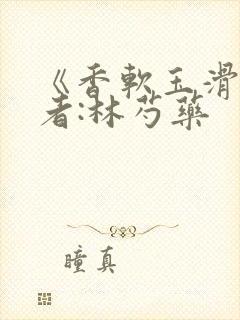 《香軟玉滑
者:林芍藥
瞳真